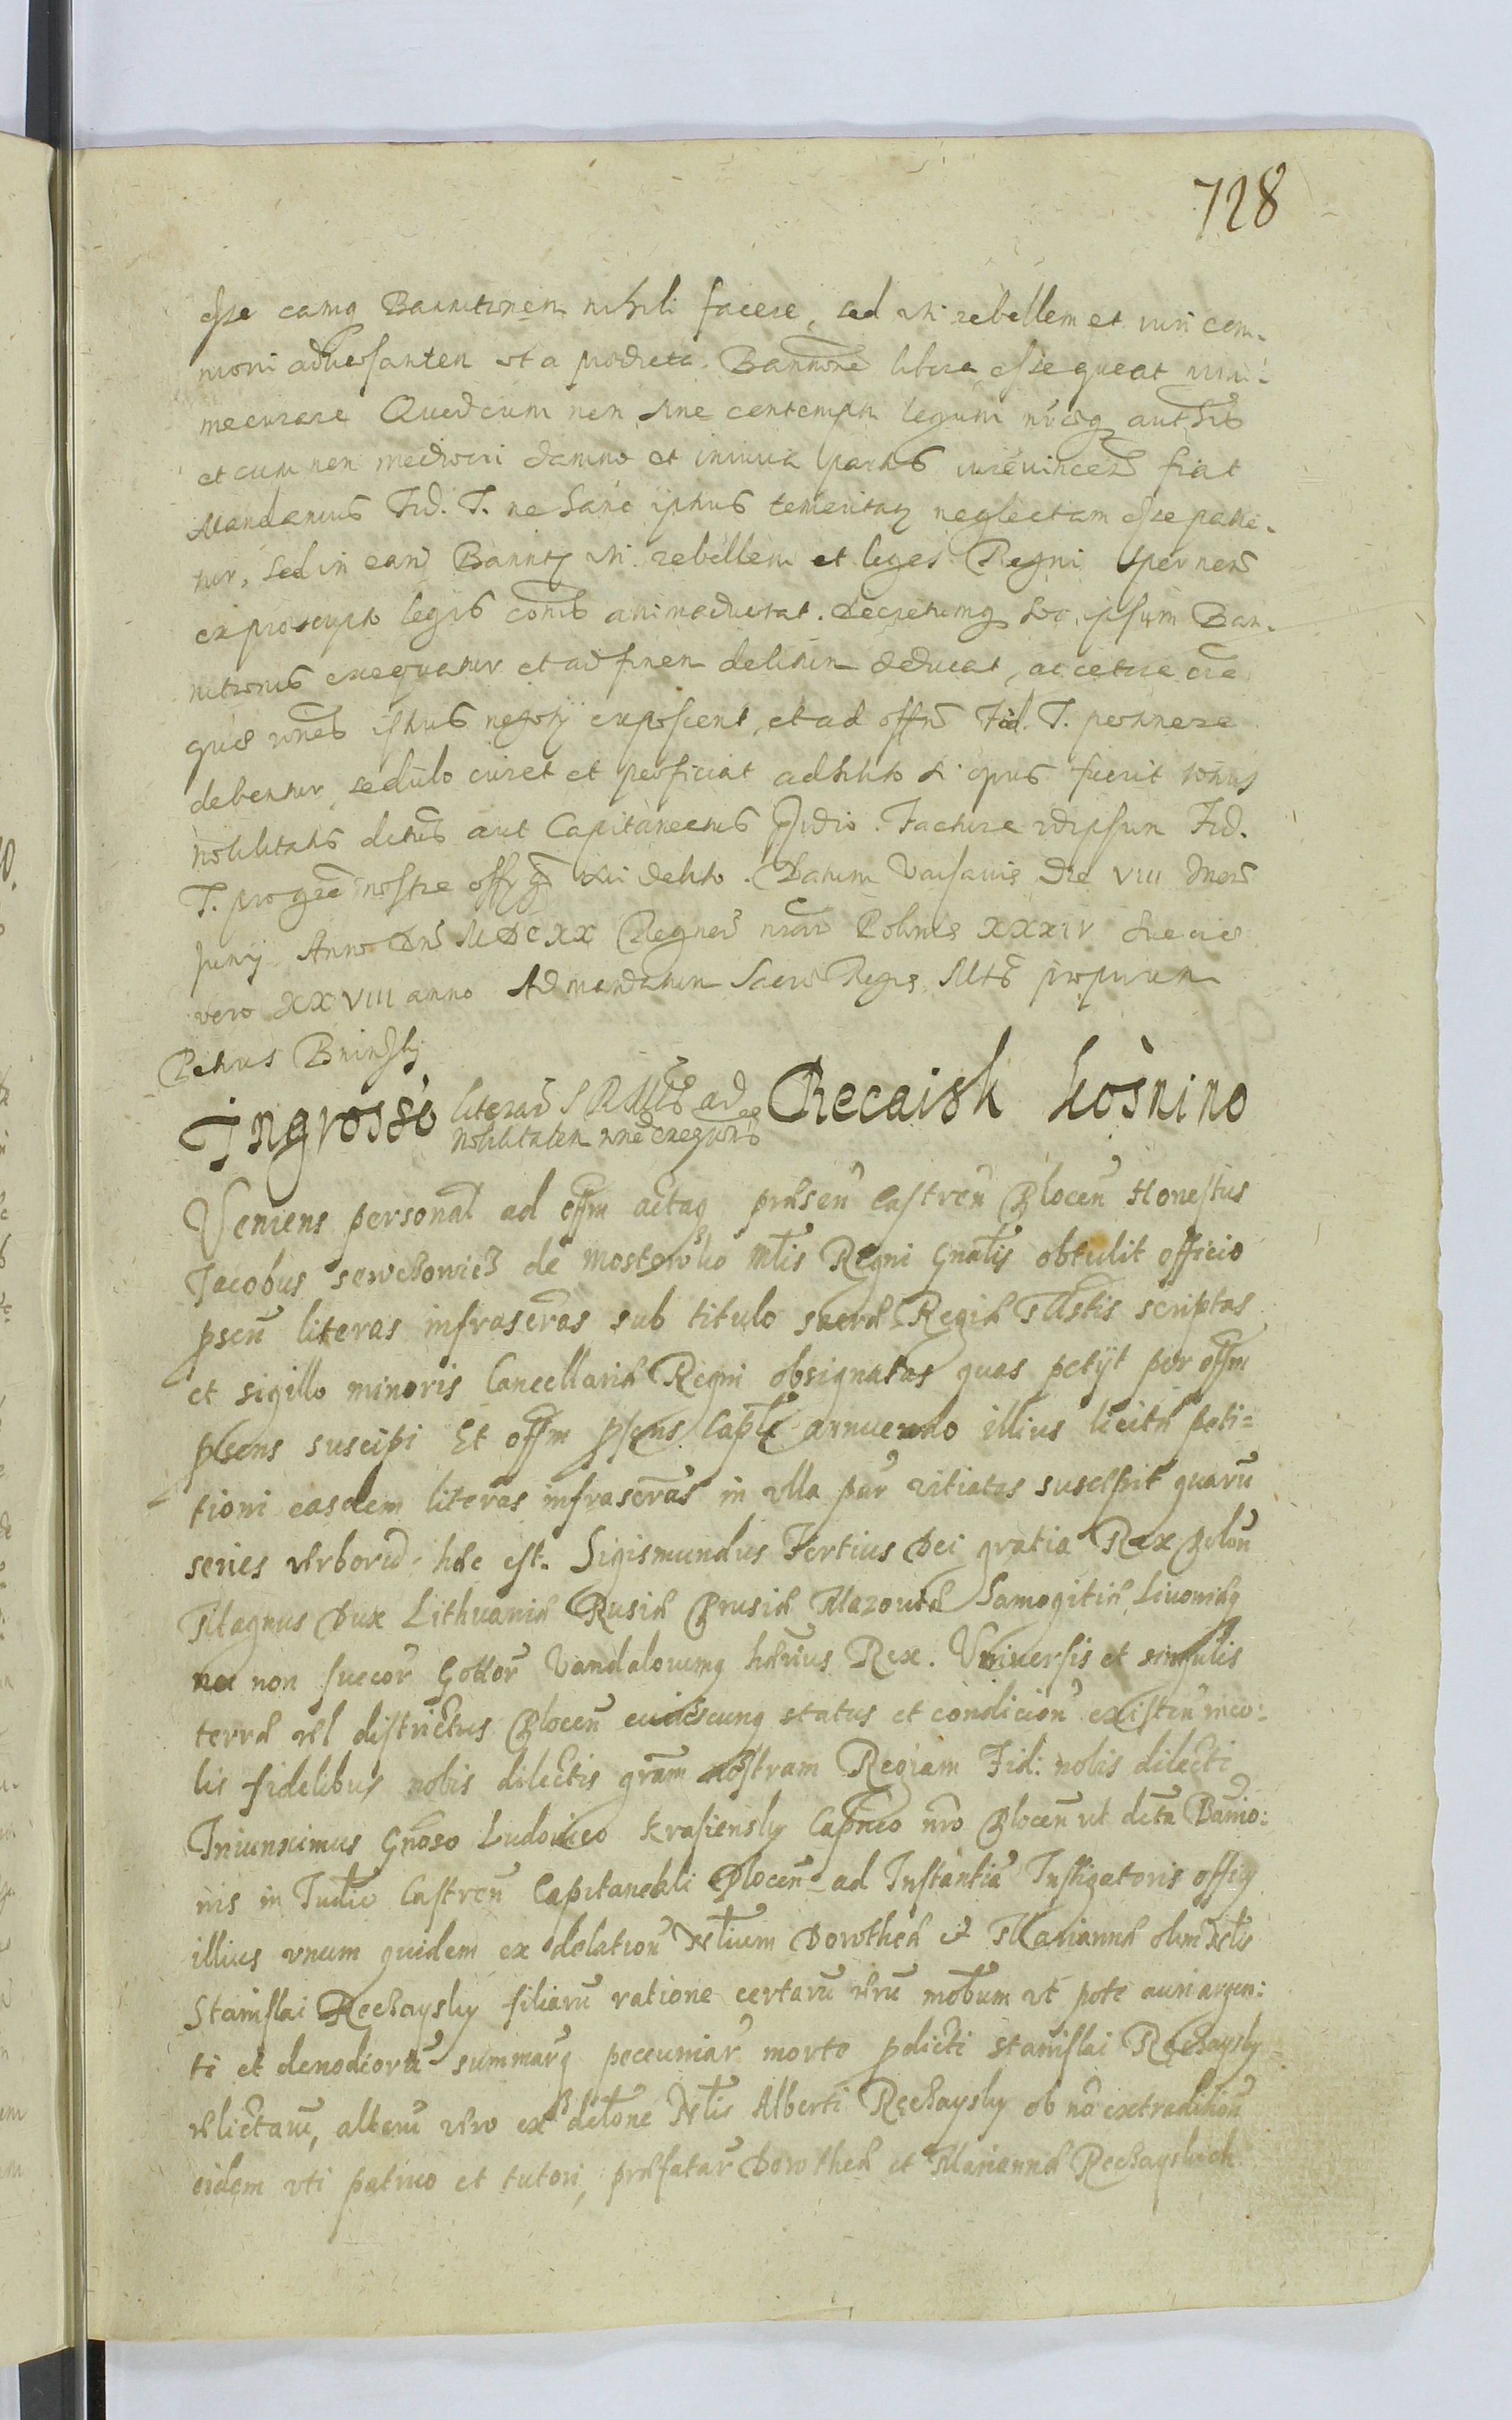 728
esse eamq Bannitionem nihili facere, sed uti rebellem et iuri com-
muni adversantem ut a predicta Bannitione libera esse queat mini-
me curare Quod cum non sine contemptu legum nrorq authtis
et cum non mediocri damno et iniuria partis iure vincen fiat
Mandamus Fid. T. ne hanc ipsius temeritatem neglectam esse patia-
tur, sed in eam Bannitz uti rebellem et leges Regni spernen
ex proscripto legis conis animadvertat. Decretumq hoc ipsum Ban-
nitionis exequatur et ad finem debitum deducat, ac cetera oia
que rones istius negotij exposcent, et ad offm Fid. T. pertinere
debentur, sedulo curet et perficiat adhibito si opus fuerit totius
nobilitatis districtus aut Capitaneatus psidio. Factura idipsum Fid.
T. pro gra nostra offijq sui debito. Datum Varsavie Die VIII Mens
Junij Anno Dni MDCXX Regnor nror Polonie XXXIV Suecie
vero XXVIII anno Ad mandatum Sacre Regie Mtis proprium
Petrus Bninsky
Ingrosso literar S R Mtis ad Recaisk Kosnino
nobilitatem rone exequonis
Veniens personal ad offm actaq prnsen Castren Plocen Honestus
Jacobus sewchowicz de Mostowko Mtis Regni Gnalis obtulit officio
pscn literas infrascras sub titulo sacre Regie Mstis scriptas
et sigillo minoris Cancellarie Regni obsignatas quas petijt per offm
psens suscipi Et offm psens Caple annuendo illius licite peti=
tioni easdem literas infrascras in ulla par vitiatas suscepit quaru
series verboru hec est. Sigismundus Tertius Dei gratia Rex Polon
Magnus Dux Lithuanie Rusie Prusie Mazovie Samogitie Livonieq
nec non Suecor Gottor Vandalorumq hrius Rex. Universis et singulis
terre vel districtus Plocen cuiuscunq status et condicion existen inco:
lis fidelibus nobis dilectis gram nostram Regiam Fid: nobis dilecti
Iniunximus Gnoso Ludovico Krasiensky Capneo nro Plocen ut dcta Banio:
nis in Judic Castren Capitaneali Plocen ad Instantia Instigatoris offcy
illius unum quidem ex delation Nlium Dorothee et Marianne olim Nlis
Stanislai Rechaysky filiaru ratione certaru reru mobium ut pote auri argen:
ti et denodioru summarq pecuniar morte pdicti Stanislai Rechaysky
relictaru, alteru vero ex delone Nlis Alberti Rechaysky ob no extradition
eidem uti patruo et tutori, prefatar Dorothee et Marianne Rechayskich